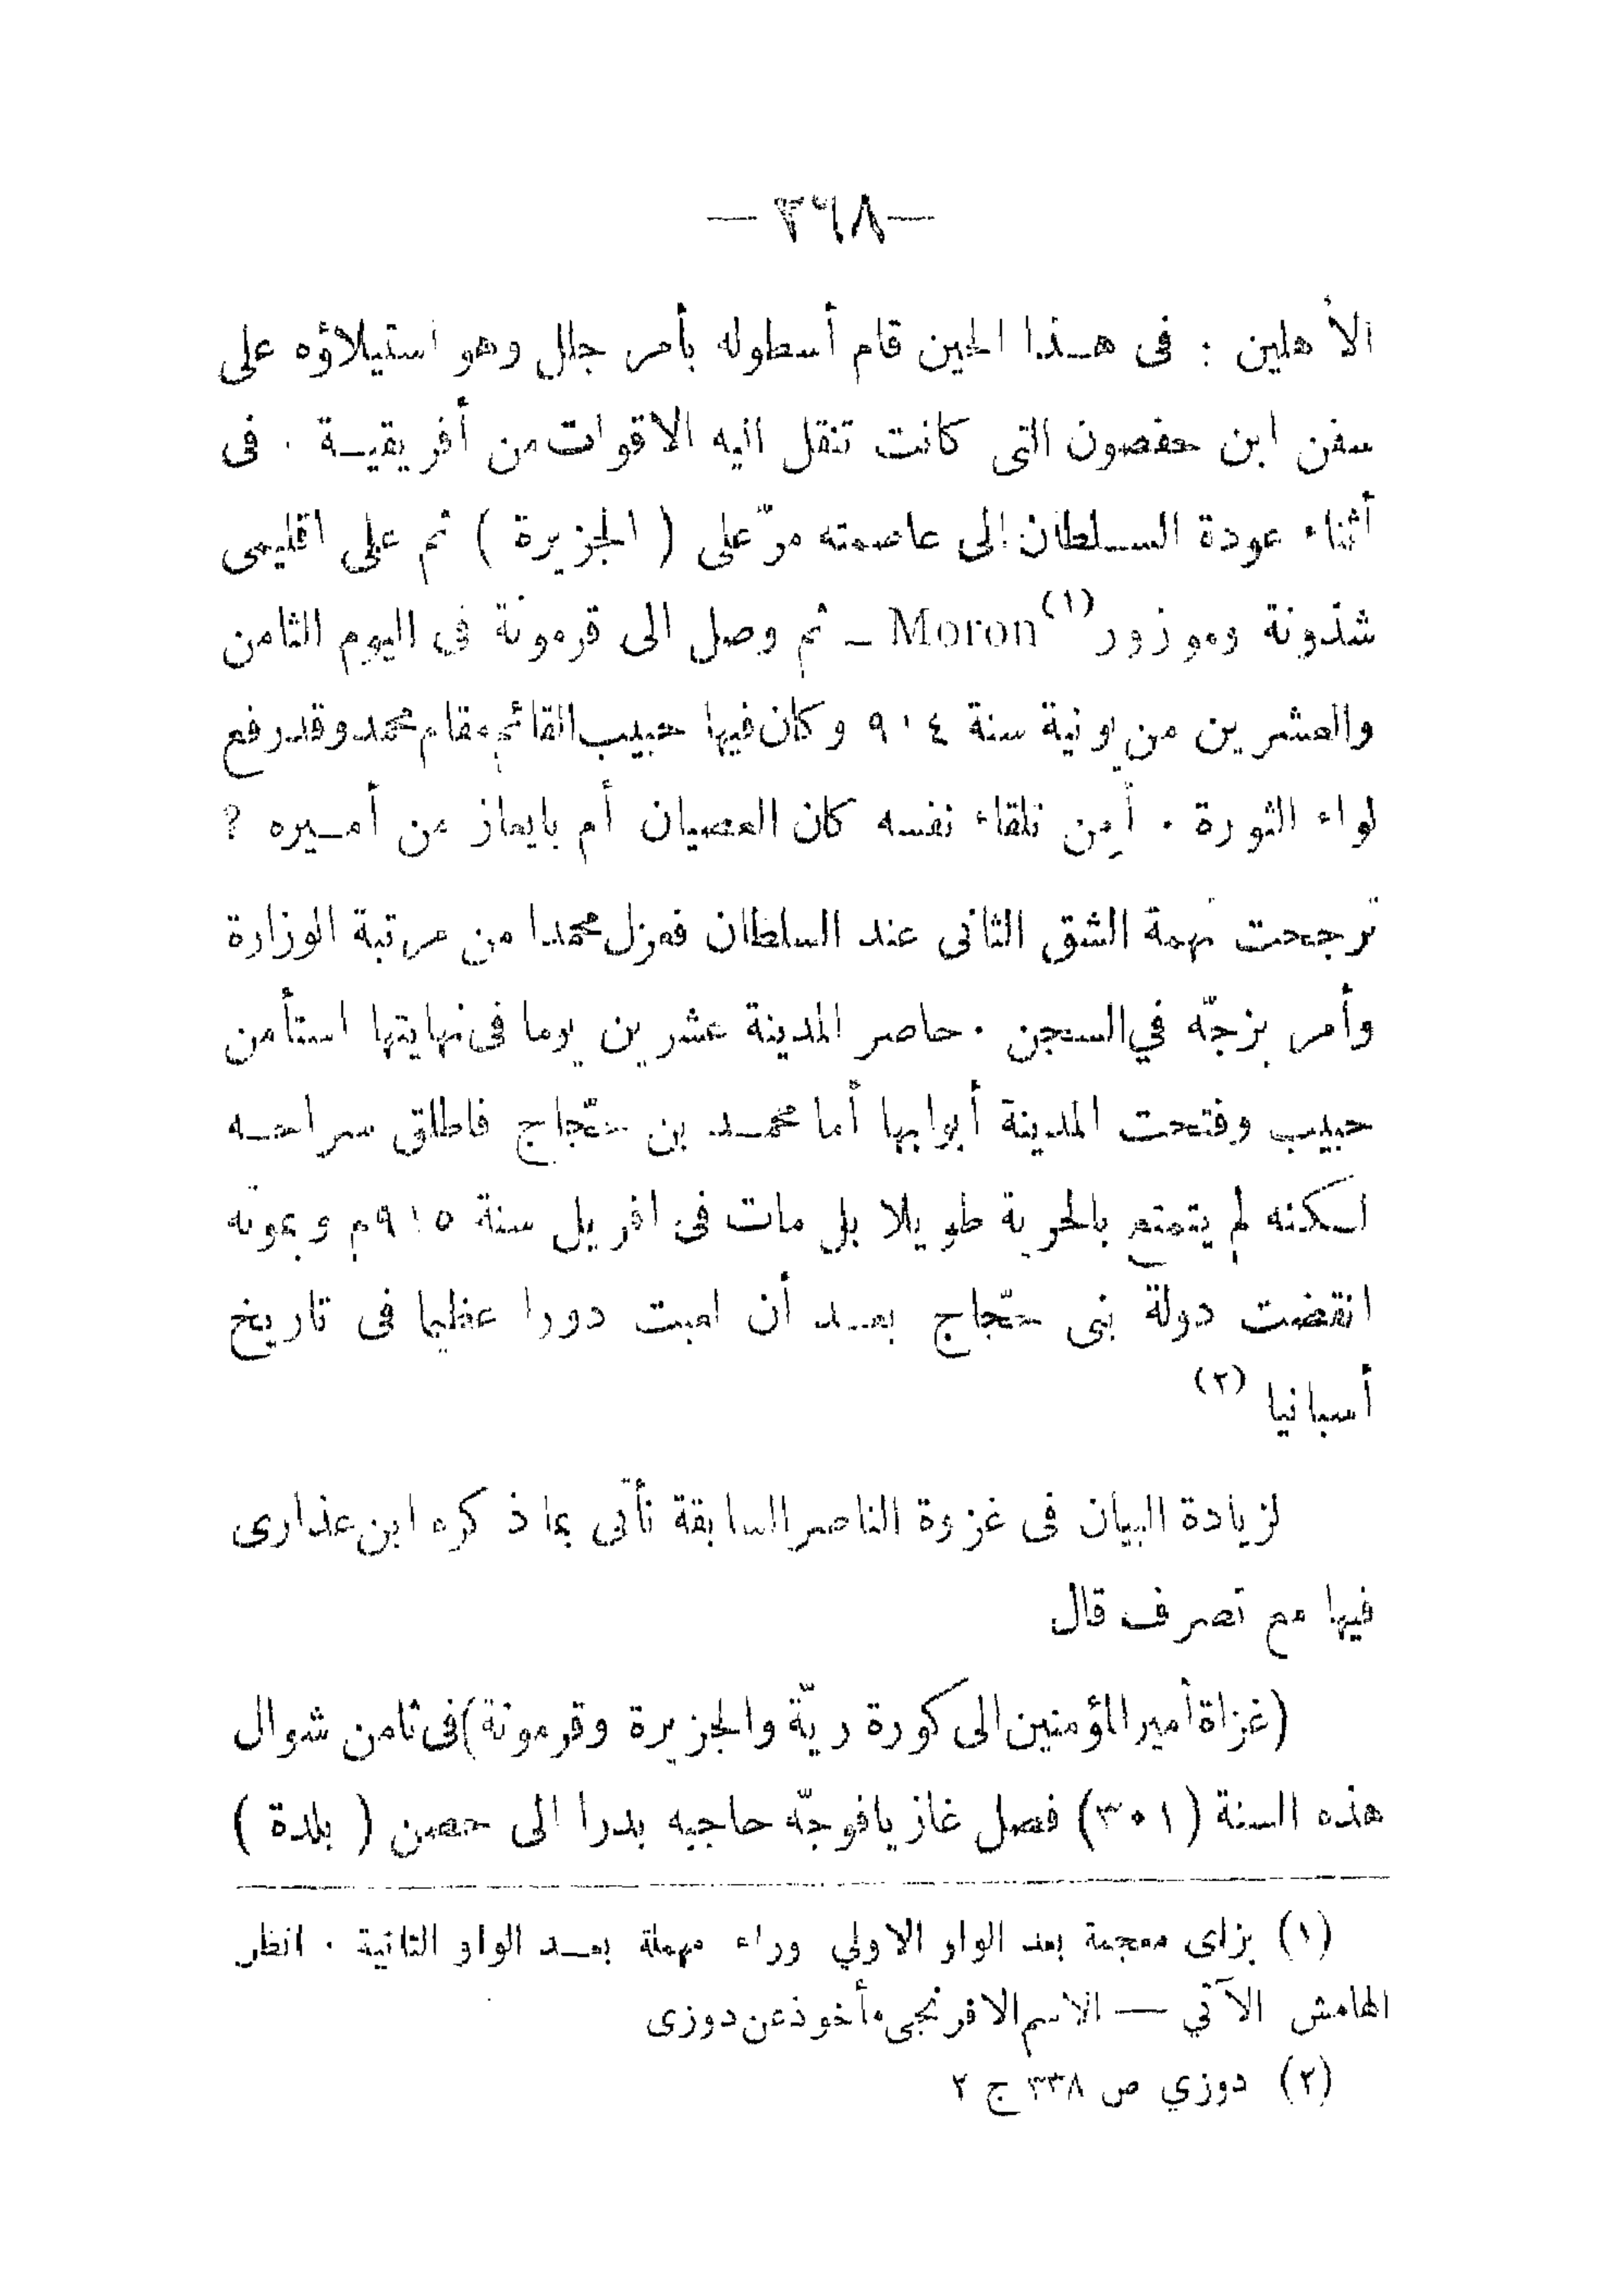 — ٣٦٨ —
الأهلين : فى هـذا الحين قام أسطوله بأمر جلل وهو استيلاؤه على
سفن ابن حفصون التى كانت تنقل اليه الاقوات من أفريقيـة . فى
أثناء عودة السـلطان الى عاصمته مرّ على ( الجزيرة ) ثم على اقليمى
شذونة وموزور (١) Moron ـ ثم وصل الى قرمونة فى اليوم الثامن
والعشرين من يونية سنة ٩١٤ وكان فيها حبيب القائم مقام محمد وقد رفع
لواء الثورة . أمِن تلقاء نفسه كان العصيان أم بايعاز من أمـيره ?
ترجحت تهمة الشق الثانى عند السلطان فعزل محمدا من مرتبة الوزارة
وأمر بزجّه في السجن . حاصر المدينة عشرين يوما فى نهايتها استأمن
حبيب وفتحت المدينة أبوابها أما محمـد بن حجّاج فاطلق سراحـه
لـكنه لم يتمتع بالحرية طويلا بل مات فى افريل سنة ٩١٥ م وبموته
انقضت دولة بنى حجّاج بعـد أن لعبت دورا عظيما فى تاريخ
أسبانيا (٢)
لزيادة البيان فى غزوة الناصر السابقة نأتى بما ذكره ابن عذارى
فيها مع تصرف قال
(غزاة أمير المؤمنين الى كورة ريّة والجزيرة وقرمونة) فى ثامن شوال
هذه السنة (٣٠١) فصل غازيا فوجّه حاجبه بدرا الى حصن ( بلدة )
(١) بزاى معجمة بعد الواو الاولي وراء مهملة بعـد الواو الثانية . انظر
الهامش الآتي — الاسم الافرنجى مأخوذ عن دوزى
(٢) دوزي ص ٣٣٨ ج ٢